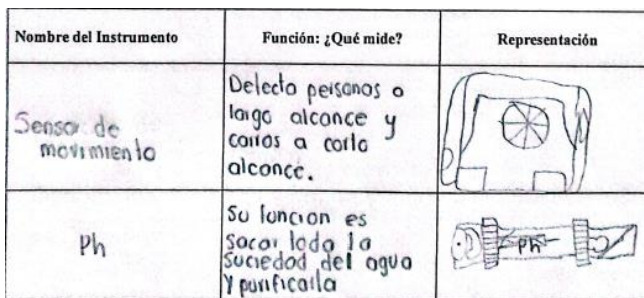 Nombre del Instrumento
Función: ¿Qué mide?
Representación
Sensor de
movimiento
Detecta personas a
largo alcance y
carros a corto
alcance.
Ph
Su funcion es
sacar toda la
suciedad del agua
y purificarla
Ph